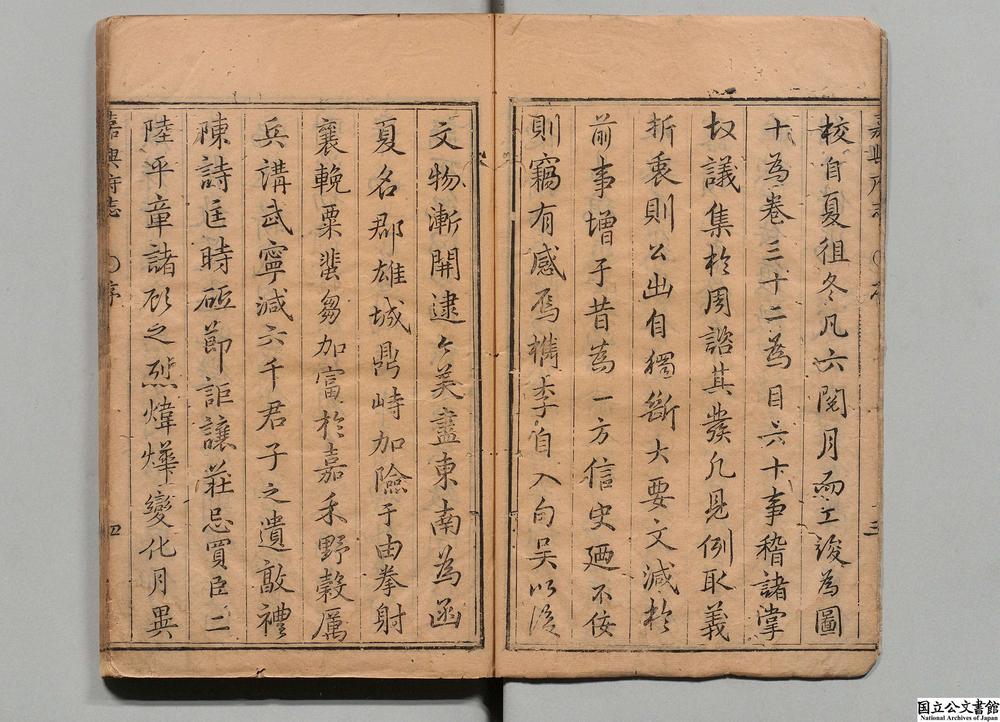 校自夏徂冬凡六閱月而工竣為圖
十為卷三十二為目六十事稽諸掌
故議集於周諮其發凡見例取義
折衷則公出自獨斷大要文減於
前事增于昔為一方信史廼不佞
則竊有感焉檇李自入句吳以後
嘉興府志
序
三
文物漸開逮今美盡東南為函
夏名郡雄城鼎峙加險于由拳射
襄輓粟蜚芻加富於嘉禾野穀厲
兵講武寧減六千君子之遺敦禮
陳詩匡時砥節詎讓莊忌買臣二
陸平章諸顧之烈煒燁變化月異
嘉興府志
序
四
国立公文書館
National Archives of Japan